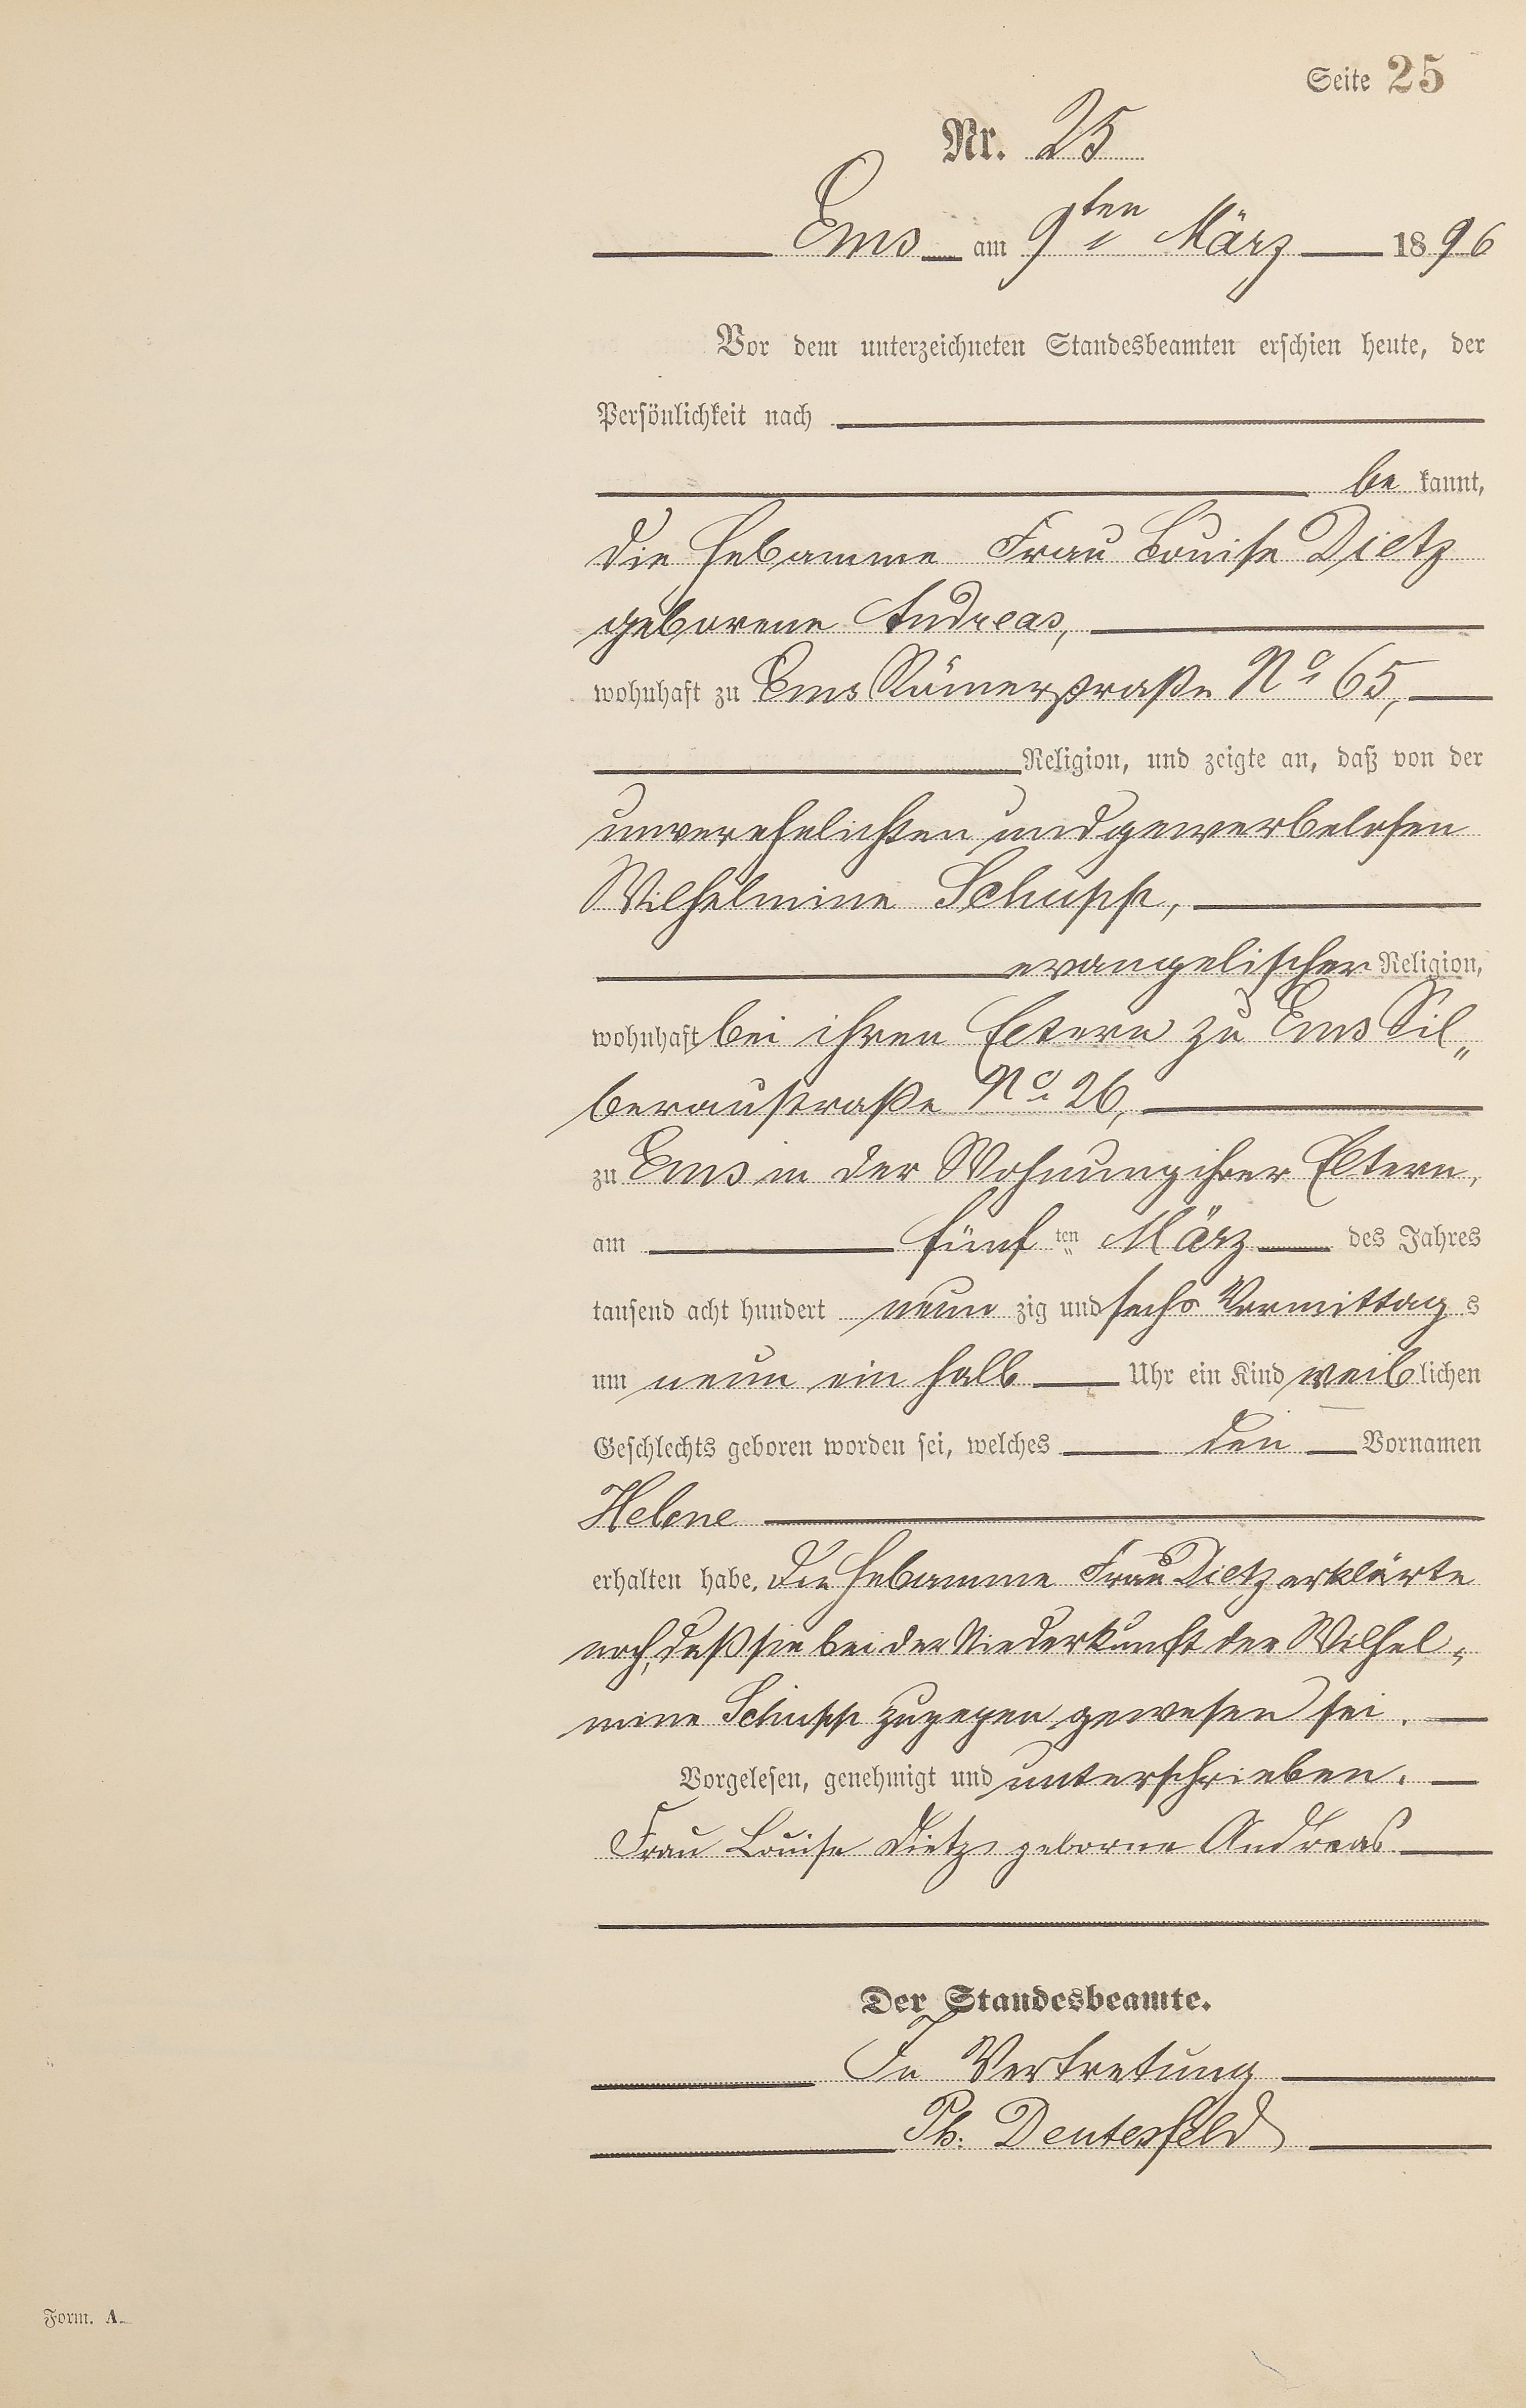 Seite 25
Nr. 25
Ems am 9ten März 1896
Vor dem unterzeichneten Standesbeamten erschien heute, der
Persönlichkeit nach
be kannt,
die Hebamme Frau Louise Dietz
geborene Andreas,
wohnhaft zu Ems Römerstraße No 65,
Religion, und zeigte an, daß von der
unverehelichten und gewerbelosen
Wilhelmine Schupp,
evangelischer Religion,
wohnhaft bei ihren Eltern zu Ems Sil„
beraustraße No 26,
zu Ems in der Wohnung ihrer Eltern,
am fünf ten März des Jahres
tausend acht hundert neun zig und sechs Vormittag s
um neun ein halb Uhr ein Kind weib lichen
Geschlechts geboren worden sei, welches den Vornamen
Helene
erhalten habe. Die Hebamme Frau Dietz erklärte
noch, daß sie bei der Niederkunft der Wilhel„
mine Schupp zugegen gewesen sei.
Vorgelesen, genehmigt und unterschrieben.
Frau Louise Dietz geborne Andreas
Der Standesbeamte.
In Vertretung
Ph. Deutesfeld
Form. A.